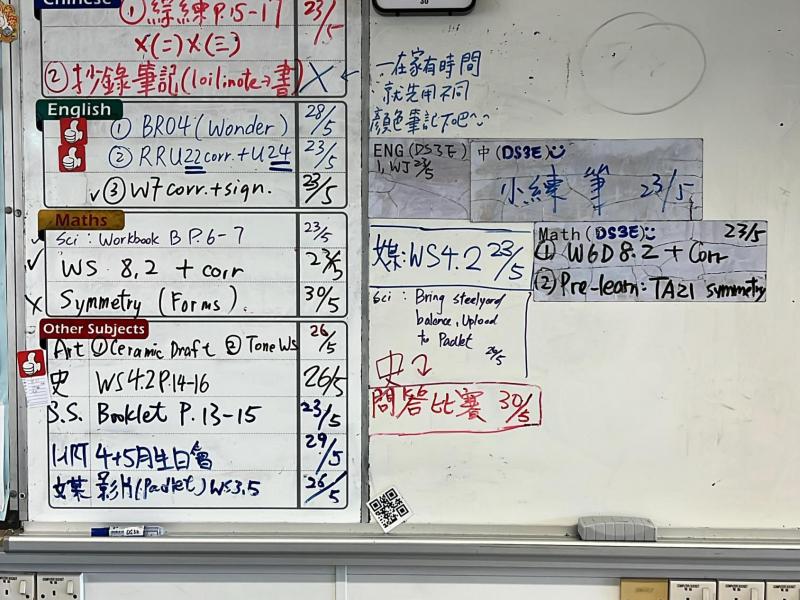 Chinese
① 綜練 P.15-17 23/5
X(二) X(三)
② 抄錄筆記(loilinote→書) X
English
① BR04 (Wonder) 28/5
② RRU22 corr. + U24 23/5
✓③ W7 corr. + sign. 23/5
Maths
Sci : Workbook B P.6-7 23/5
✓ WS 8.2 + corr 23/5
X Symmetry (Forms) 30/5
Other Subjects
Art ① Ceramic Draft ② Tone WS 26/5
史 WS4.2 P.14-16 26/5
B.S. Booklet P.13-15 23/5
HRT 4+5月生日會 29/5
媒 影片(Padlet) WS3.5 26/5
← 在家有時間
就先用不同
顏色筆記下吧~
ENG (DS3E)
1, WJ 23/5
中 (DS3E)
小練筆 23/5
媒: WS4.2 23/5
Math (DS3E) 23/5
① W6D8.2 + Corr
② Pre-learn: TA21 symmetry
Sci : Bring steelyard
balance, Upload
to Padlet
26/5
史
問答比賽 30/5